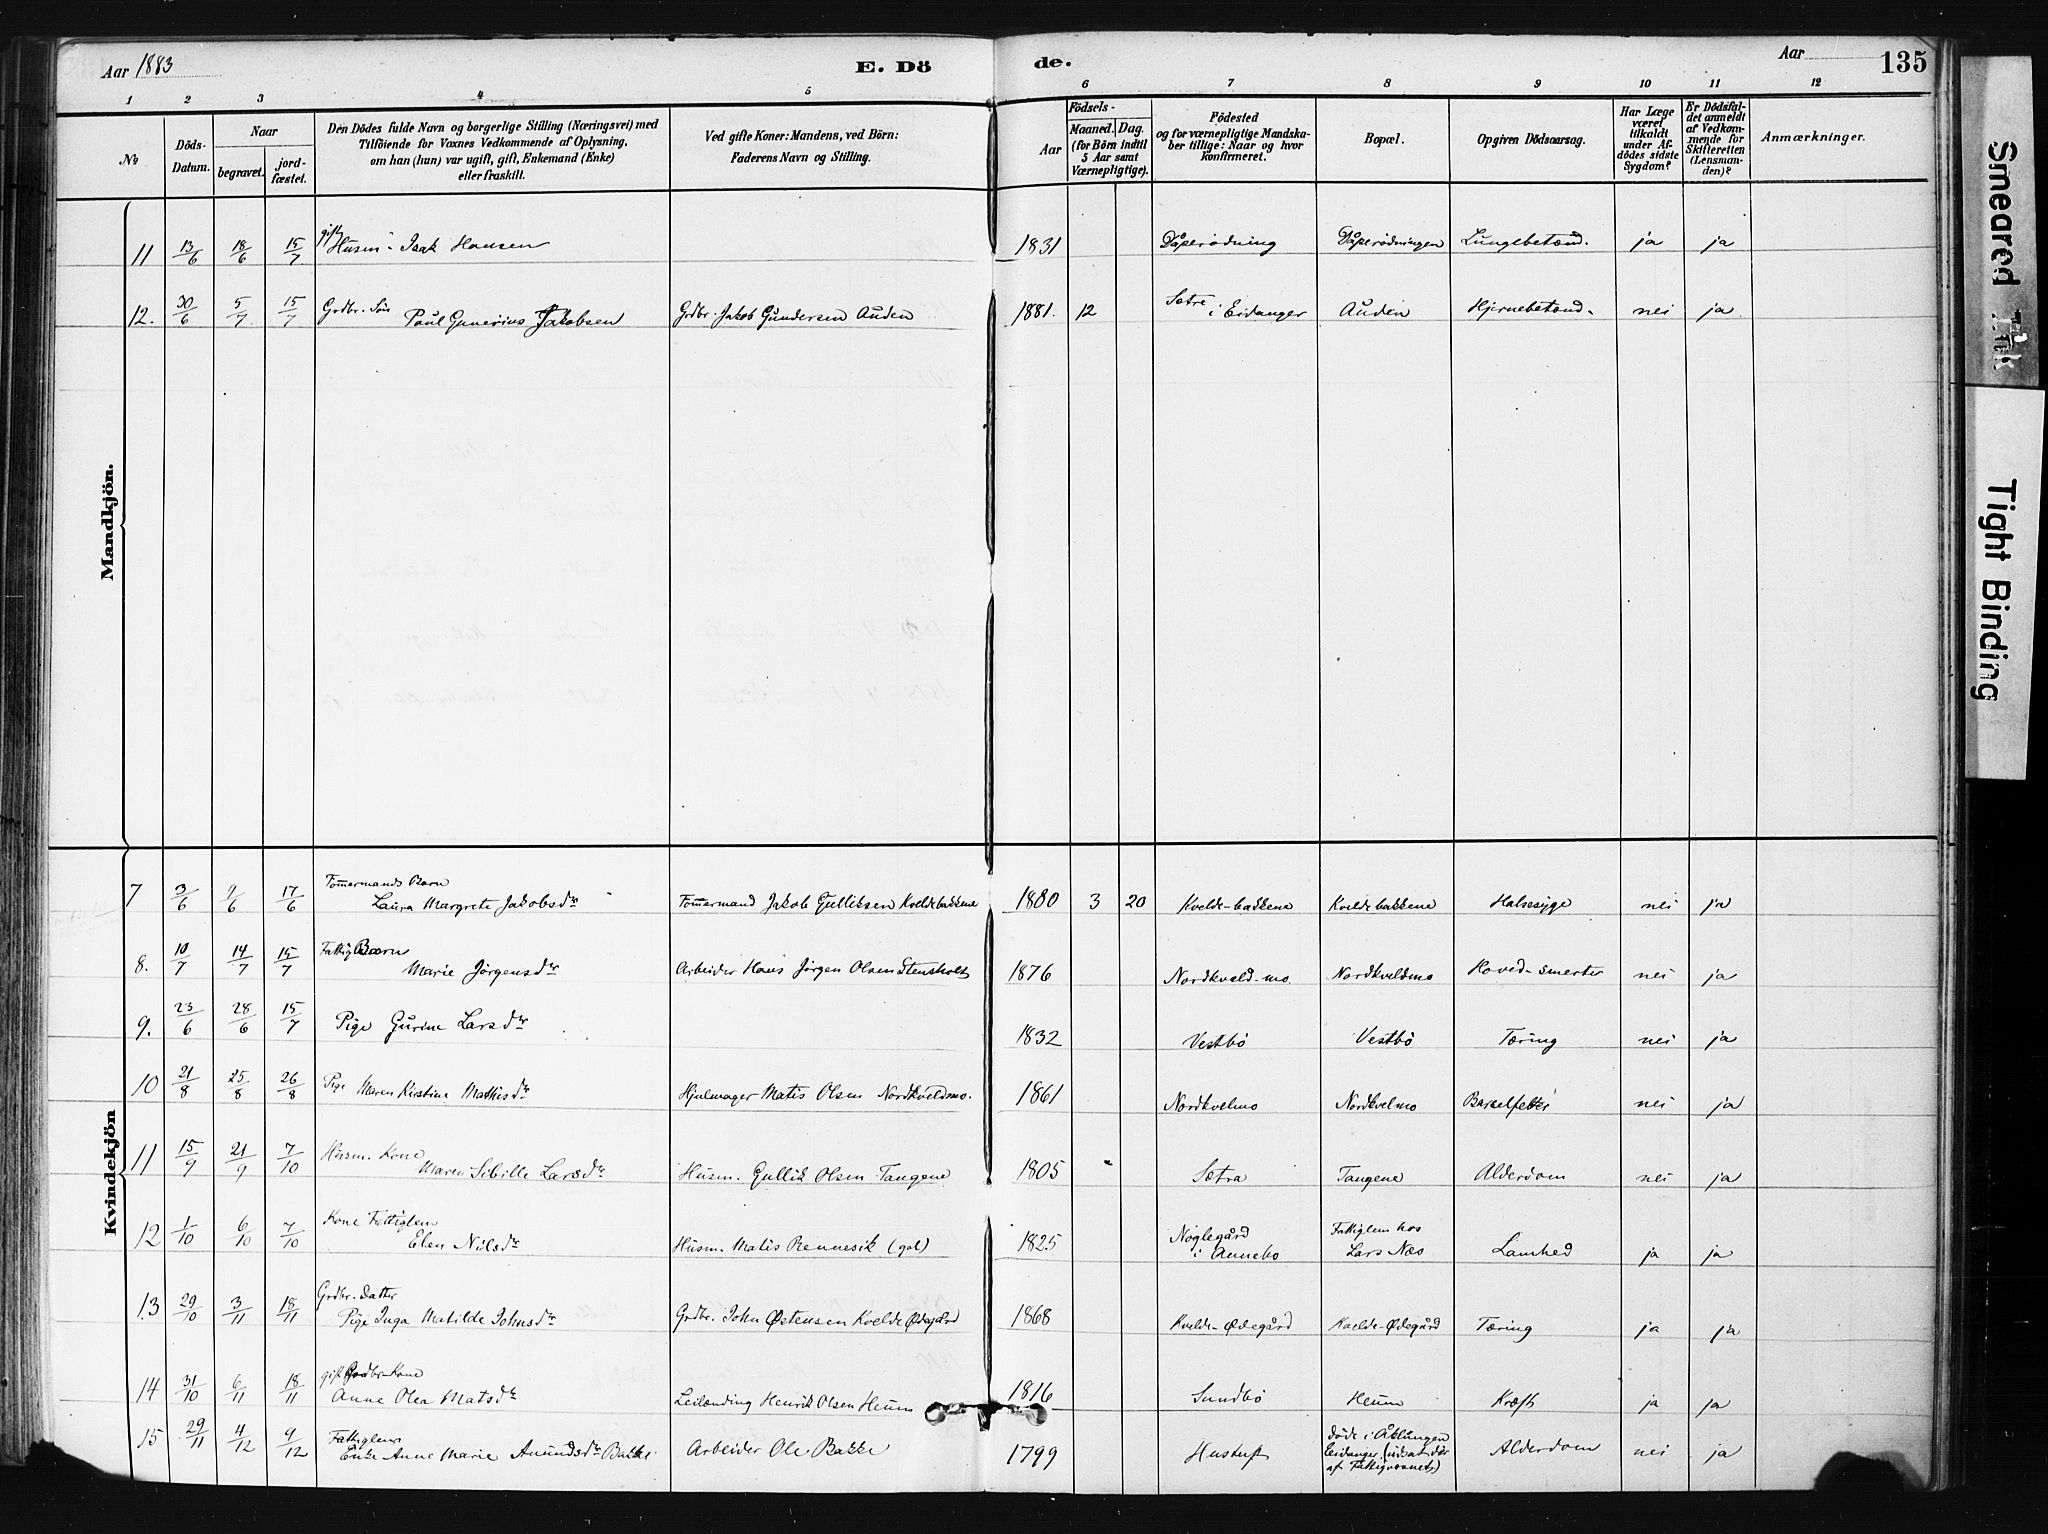 Aar 1883
E. Dö
de.
Aar
135
1 2 3 4 5 6 7 8 9 10 11 12
No
Döds-Datum.
Naar
begravet.
jord-fæstet.
Den Dödes fulde Navn og borgerlige Stilling (Næringsvei) med
Tilföiende for Voxnes Vedkommende af Oplysning,
om han (hun) var ugift, gift, Enkemand (Enke)
eller fraskilt.
Ved gifte Koner: Mandens, ved Börn:
Faderens Navn og Stilling.
Födsels-
Aar
Maaned. Dag.
(for Börn indtil
5 Aar samt
Værnepligtige).
Födested
og for værnepligtige Mandska-
ber tillige: Naar og hvor
konfirmeret.
Bopæl.
Opgiven Dödsaarsag.
Har Læge
været
tilkaldt
under Af-
dödes sidste
Sygdom?
Er Dödsfal-
det anmeldt
af Vedkom-
mende for
Skifteretten
(Lensman-
den)?
Anmærkninger.
Mandkjön.
gift
11 13/6 18/6 15/7 Husm. Isak Hansen 1831 Dåperødning Dåperødningen Lungebetænd. ja ja
12. 30/6 5/7 15/7 Grdbr. Søn Paul Gunerius Jakobsen Grdbr. Jakob Gundersen Auden 1881. 12 Sætre i Eidanger Auden Hjernebetænd. nei ja
Kvindekjön
Tømermands Barn
7 3/6 9/6 17/6 Laura Margrete Jakobsdr Tømermand Jakob Gulliksen Kveldebakkene 1880 3 20 Kvelde-bakkene Kveldebakkene Halsesyge nei ja
Fattig Barn
8. 10/7 14/7 15/7 Marie Jørgensdr Arbeider Hans Jørgen Olsen Stensholt 1876 Nordkveld-mo. Nordkveldmo Hoved-smerter nei ja
9. 23/6 28/6 15/7 Pige Gurine Larsdr 1832 Vestbö Vestbö Tæring nei ja
10 21/8 25/8 26/8 Pige Maren Kirstine Mathisdr Hjulmager Matis Olsen Nordkveldmo. 1861 Nordkvelmo Nordkvelmo Barselfeber nei ja
Husm. Kone
11 15/9 21/9 7/10 Maren Sibille Larsdr Husm. Gullik Olsen Tangene 1805 Sætra Tangene Alderdom nei ja
Kone Fattiglem
12 1/10 6/10 7/10 Elen Nilsdr Husm. Matis Rennesik (gal) 1825 Nøglegård i Annebo Fattiglem hos Lars Næs Lamhed ja ja
Grdbr. Datter
13 29/10 3/11 18/11 Pige Inga Matilde Johnsdr Grdbr. John Østensen Kvelde Ødegård 1868 Kvelde-Ødegård Kvelde-Ødegård Tæring ja ja
gift Grdbr Kone
14 31/10 6/11 18/11 Anne Olea Matsdr Leilænding Henrik Olsen Heum 1816 Sundbö Heum Kræft ja ja
Fattiglem
15 29/11 4/12 9/12 Enke Anne Marie Amundsdr Bakke Arbeider Ole Bakke 1799 døde i Åklungen Eidanger (udsat der af Fattigvæsnet) Alderdom nei ja
Smeared Ink
Tight Binding